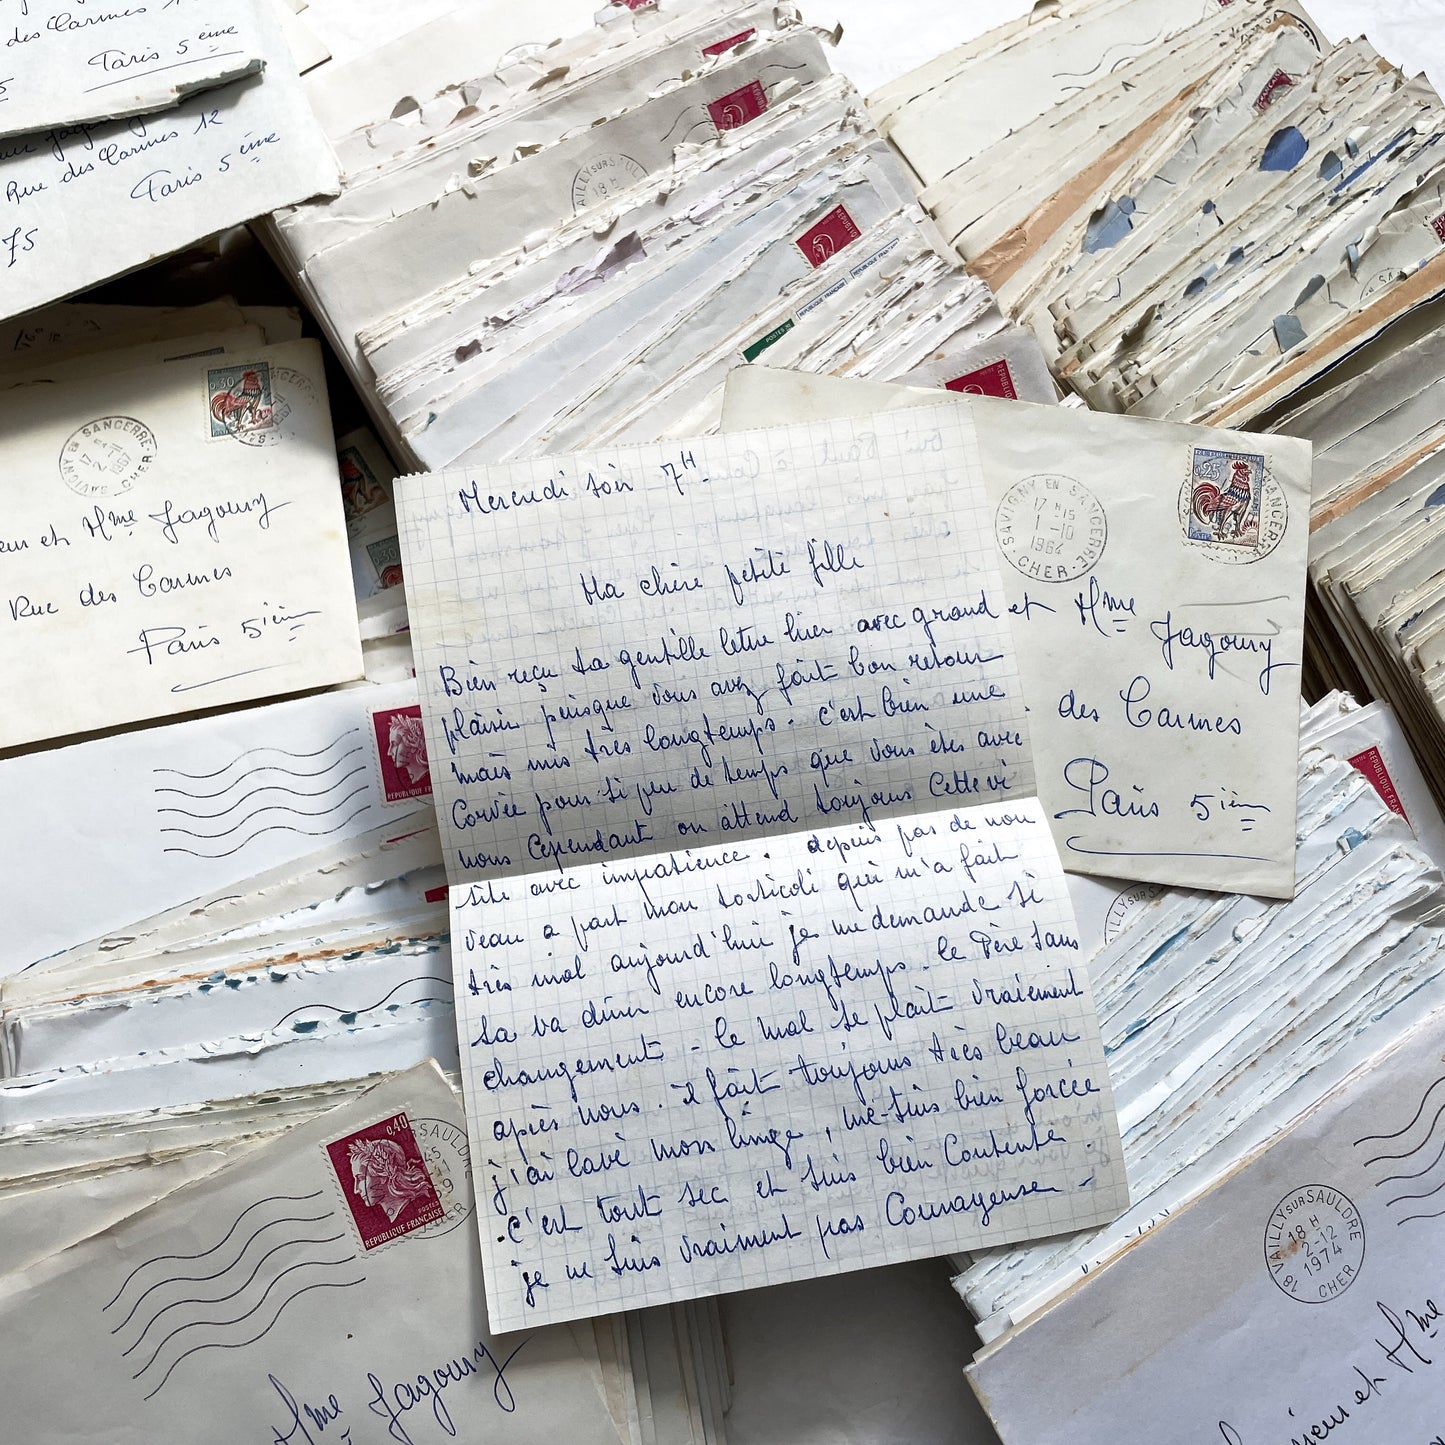 des Carmes
Paris 5 ème
Rue des Carmes 12
Paris 5 ème
75
REPUBLIQUE FRANÇAISE
REPUBLIQUE FRAN
POSTES
0,30
SAVIGNY EN SANCERRE
17
2
1967
CHER
et Mme Jagoury
Rue des Carmes
Paris 5ièm
0,30
REPUBLIQUE FRA
Mercredi soir 7H.
Ma chère petite fille
Bien reçu ta gentille lettre hier avec grand
plaisir puisque vous avez fait bon retour
mais mis très longtemps. c'est bien une
Corvée pour si peu de temps que vous êtes avec
nous Cependant on attend toujours Cette vi
site avec impatience. depuis pas de nou
veau a part mon torticoli qui m'a fait
très mal aujourd'hui je me demande si
sa va durer encore longtemps. le Père sans
changement - le mal se plait vraiment
après nous. il fait toujours très beau
j'ai lavé mon linge, me suis bien forcée
c'est tout sec et suis bien Contente.
je ne suis vraiment pas Courrageuse -
0,25
SAVIGNY EN SANCERRE
17 H 15
1 -10
1964
CHER
et Mme Jagoury
des Carmes
Paris 5ièm
0,40
POSTES
REPUBLIQUE FRANÇAISE
Mme Jagoury
18 VAILLY SUR SAULDRE
18 H
2-12
1974
CHER
et Mme